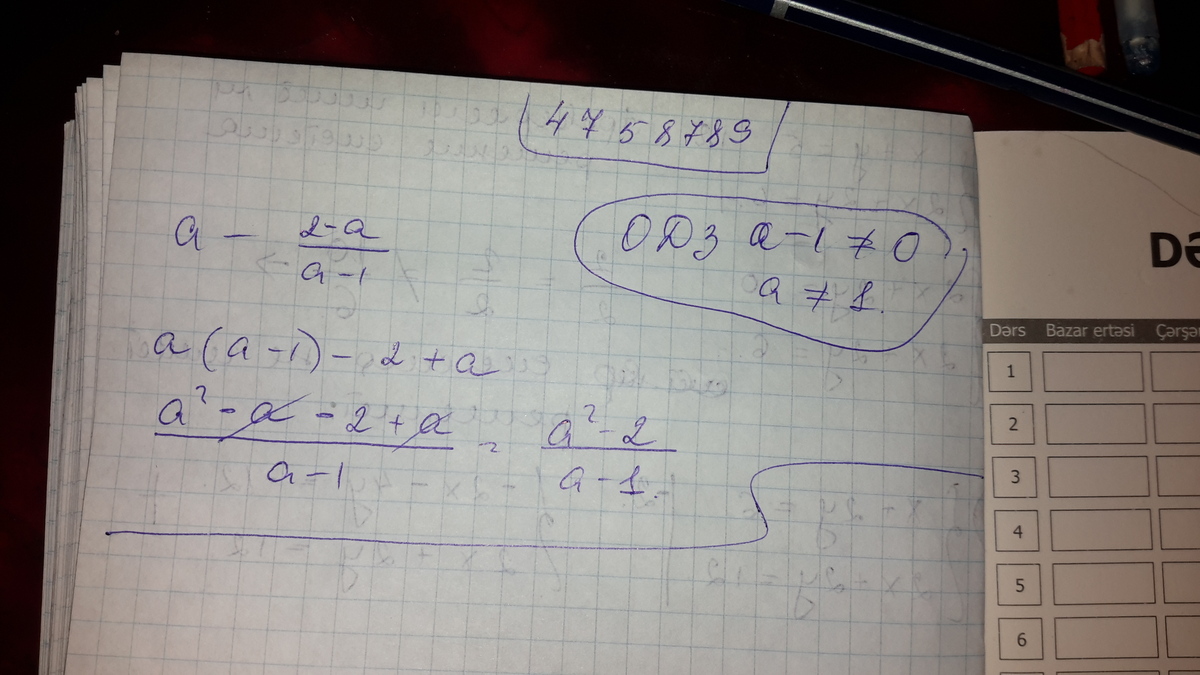 4758789
a - \frac{2-a}{a-1}
ОДЗ a-1 ≠ 0
a ≠ 1.
a(a-1)-2+a
\frac{a²-a-2+a}{a-1} = \frac{a²-2}{a-1}.
Də
Dərs Bazar ertəsi Çərşa
1
2
3
4
5
6